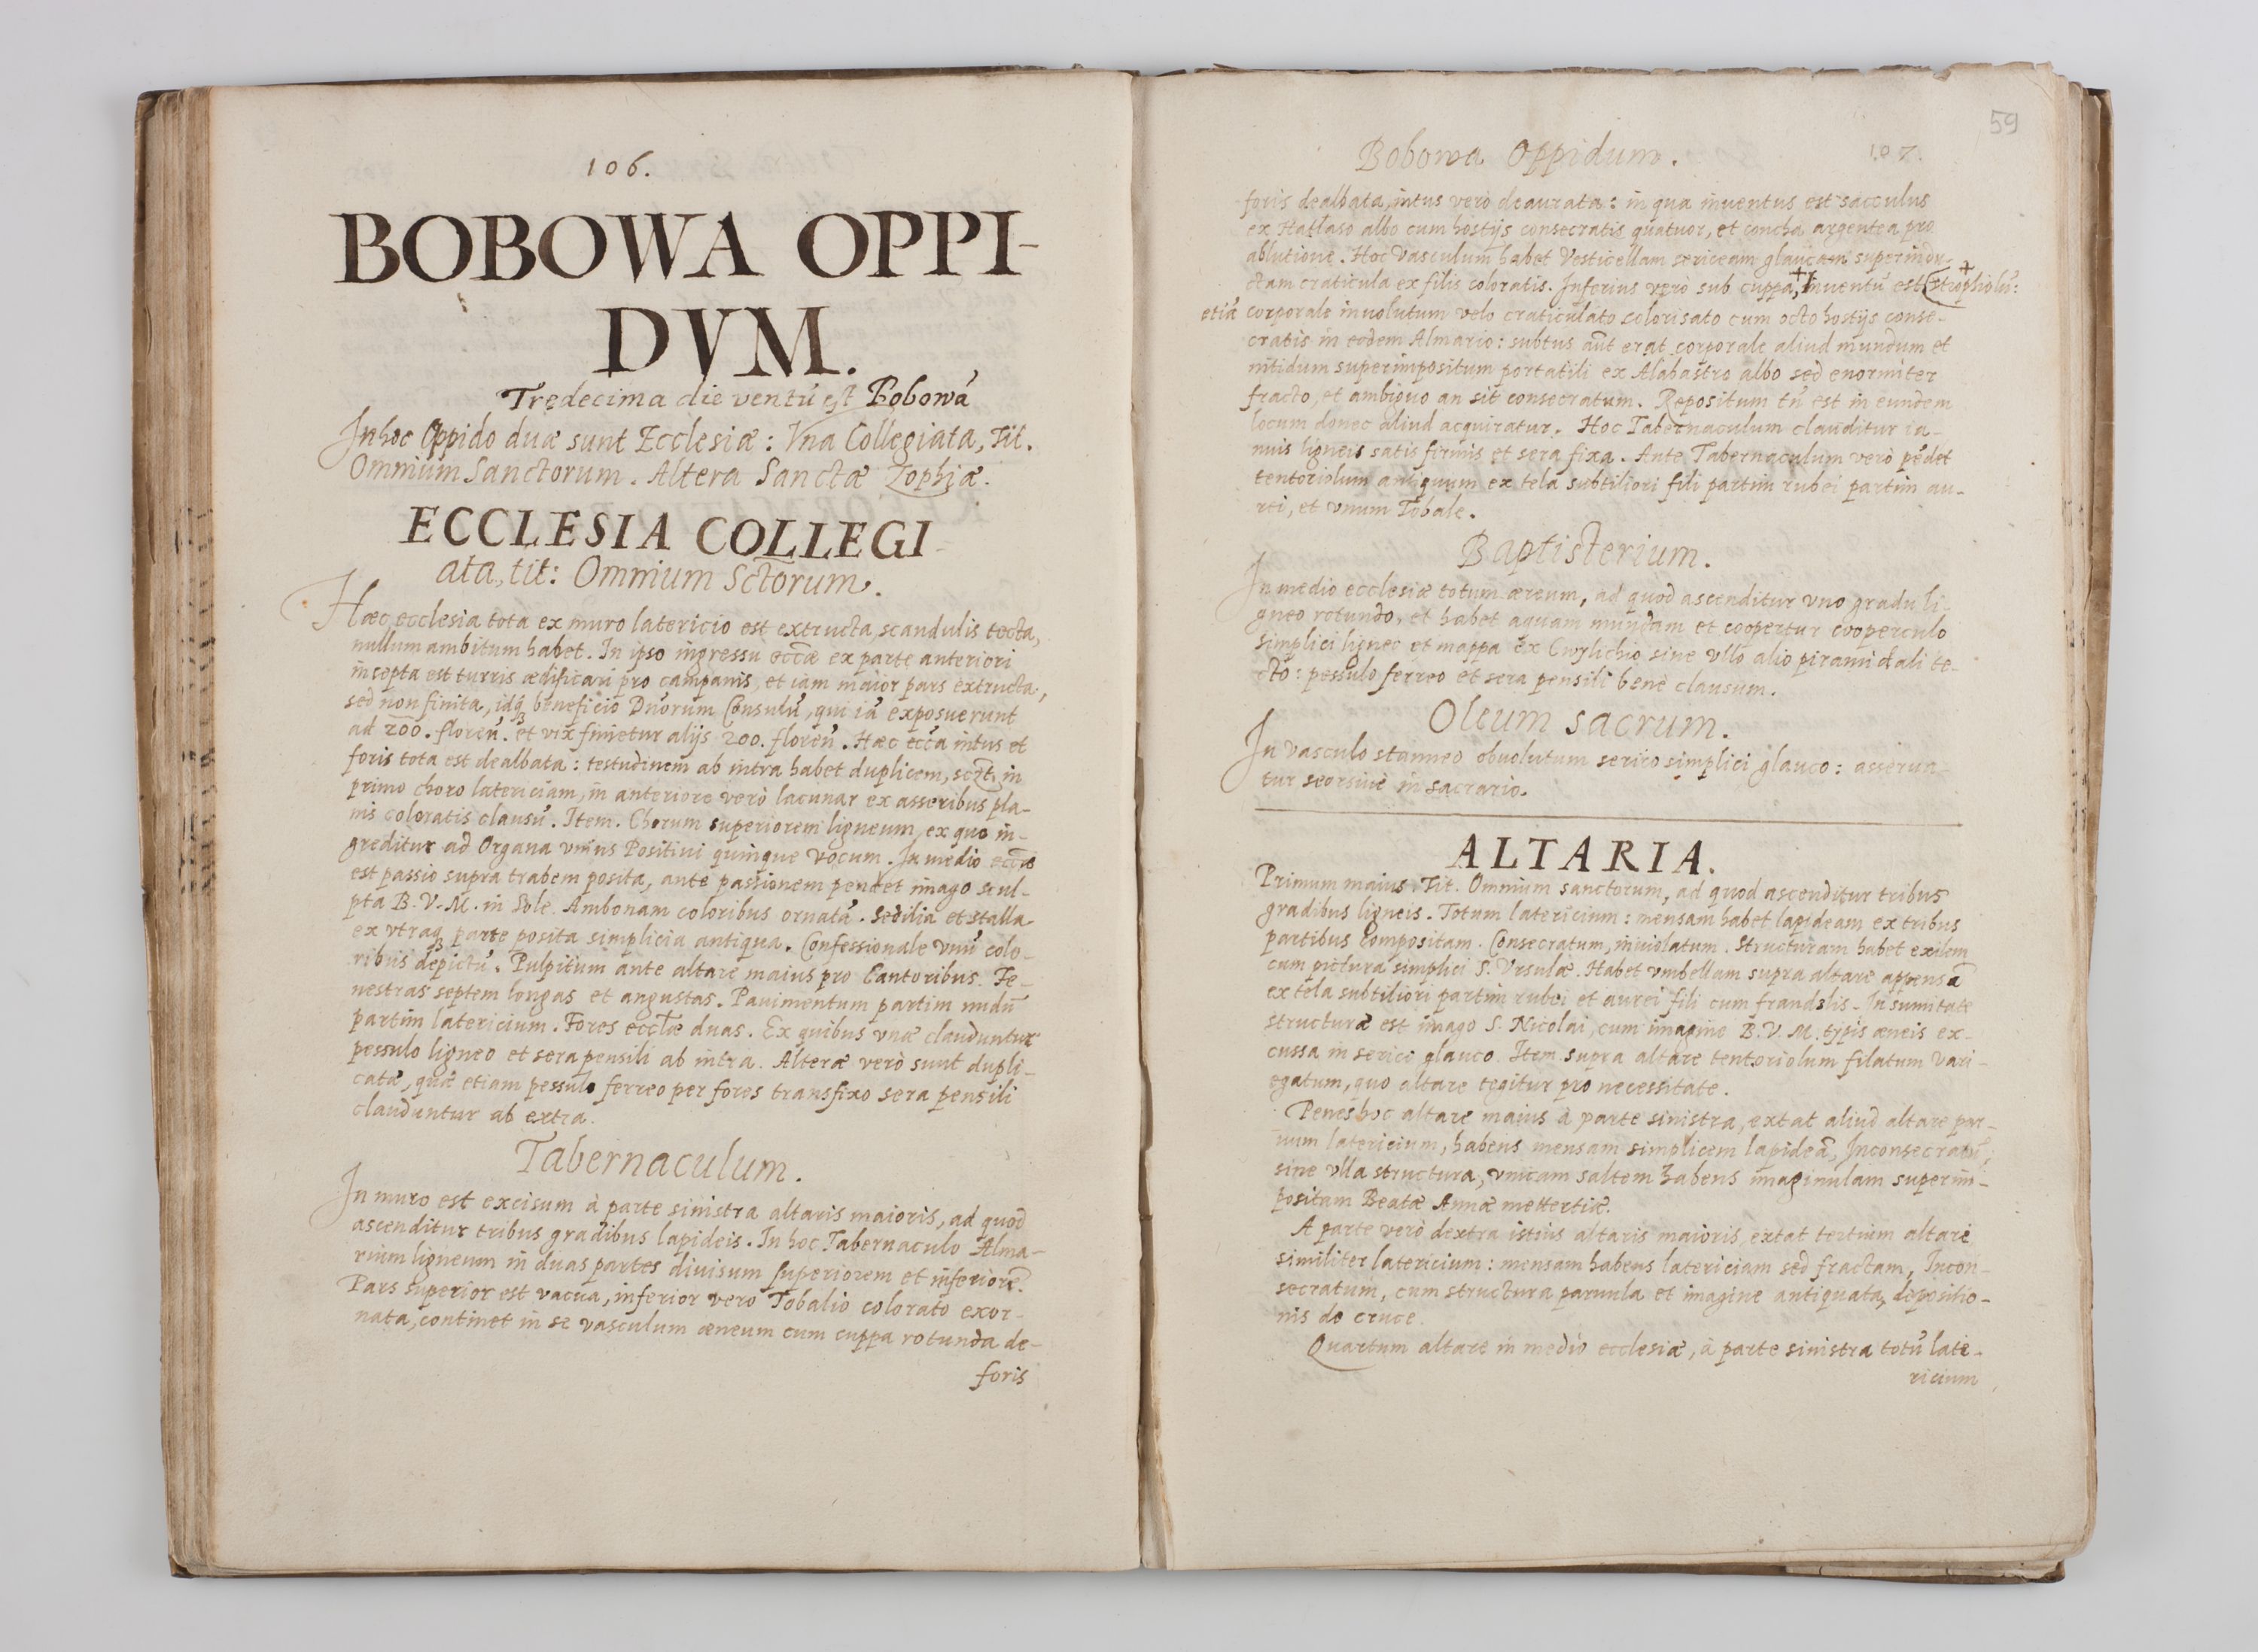 106.
BOBOWA OPPI-
DVM.
Tredecima die ventũ est Bobowã
In hoc Oppido duæ sunt Ecclesiæ: Vna Collegiata, Tit.
Omnium Sanctorum. Altera Sanctæ Zophiæ.
ECCLESIA COLLEGI
ata, tit: Omnium Sctorum.
Hæc ecclesia tota ex muro latericio est extructa, scandulis tecta,
nullum ambitum habet. In ipso ingressu eccæ ex parte anteriori
incepta est turris ædificari pro campanis, et iam maior pars extructa,
sed non finita, idq3 beneficio Dnorum Consulũ, qui iã exposuerunt
ad 200. florenũ. et vix finietur alijs 200. florenũ. Hæc ecca intus et
foris tota est dealbata: testudinem ab intra habet duplicem, sczt. in
primo choro latericiam, in anteriore verò lacunar ex asseribus pla-
nis coloratis clausũ. Item. Chorum superiorem ligneum, ex quo in-
greditur ad Organa vnius Positiui quinque vocum. In medio eccæ
est passio supra trabem posita, ante passionem pendet imago scul-
pta B. V. M. in Sole. Ambonam coloribus ornatã. Sedilia et stalla
ex vtraq3 parte posita simplicia antiqua. Confessionale vnũ colo-
ribus depictũ. Pulpitum ante altare maius pro Cantoribus. Fe-
nestras septem longas et angustas. Pauimentum partim nudũ
partim latericium. Fores ecclæ duas. Ex quibus vnæ clauduntur
pessulo ligneo et sera pensili ab intra. Alteræ verò sunt dupli-
catæ, quæ etiam pessulo ferreo per fores transfixo sera pensili
clauduntur ab extra.
Tabernaculum.
In muro est excisum à parte sinistra altaris maioris, ad quod
ascenditur tribus gradibus lapideis. In hoc Tabernaculo Alma-
rium ligneum in duas partes diuisum superiorem et inferiorẽ.
Pars superior est vacua, inferior vero Tobalio colorato exor-
nata, continet in se vasculum æneum cum cuppa rotunda de-
foris
59
Bobowa Oppidum. 107.
foris dealbata, intus verò deaurata: in qua inuentus est sacculus
ex Hatlaso albo cum hostijs consecratis quatuor, et concha argentea pro
ablutione. Hoc vasculum habet Vesticellam sericeam glaucam superindu-
ctam craticula ex filis coloratis. Inferius verò sub cuppa, inuentũ est strophiolũ:
etiã corporale inuolutum velo craticulato colorisato cum octo hostijs conse-
cratis in eodem Almario: subtus aũt erat corporale aliud mundum et
nitidum superimpositum portatili ex Alabastro albo sed enormiter
fracto, et ambiguo an sit consecratum. Repositum tñ est in eundem
locum donec aliud acquiratur. Hoc Tabernaculum clauditur ia-
nuis ligneis satis firmis et sera fixa. Ante Tabernaculum verò pẽdet
tentoriolum antiquum ex tela subtiliori fili partim rubei partim au-
rei, et vnum Tobale.
Baptisterium.
In medio ecclesiæ totum æreum, ad quod ascenditur vno gradu li-
gneo rotundo, et habet aquam mundam et coopertur cooperculo
simplici ligneo et mappa ex Cwylichio sine vllo alio piramidali te-
cto: pessulo ferreo et sera pensili bene clausum.
Oleum sacrum.
In vasculo stanneo obuolutum serico simplici glauco: asserua-
tur seorsiue in sacrario.
ALTARIA.
Primum maius Tit. Omnium sanctorum, ad quod ascenditur tribus
gradibus ligneis. Totum latericium: mensam habet lapideam ex tribus
partibus compositam. Consecratum, inuiolatum. Structuram habet exilem
cum pictura simplici S. Vrsulæ. Habet vmbellam supra altare appensã
ex tela subtiliori partim rubei et aurei fili cum frandslis. In sumitate
structuræ est imago S. Nicolai, cum imagine B. V. M. typis æneis ex-
cussa in serici glauco. Item supra altare tentoriolum filatum vari-
egatum, quo altare tegitur pro necessitate.
Penes hoc altare maius à parte sinistra, extat aliud altare par-
uum latericium, habens mensam simplicem lapideã, Inconsecratũ,
sine vlla structura, vnicam saltem habens imaginulam superim-
positam Beatæ Annæ mettertiæ.
A parte verò dextra istius altaris maioris extat tertium altare
similiter latericium: mensam habens latericiam sed fractam, Incon-
secratum, cum structura paruula et imagine antiquata, depositio-
nis de cruce.
Quartum altare in medio ecclesiæ, à parte sinistra totũ late-
ricium